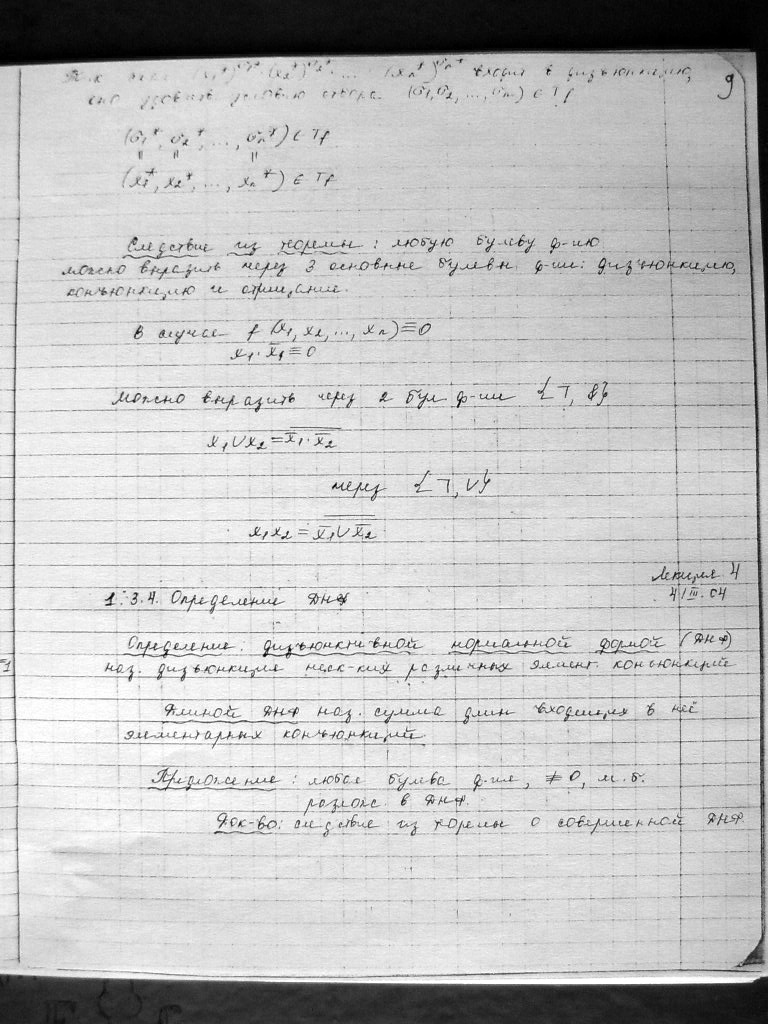 9
(x₂*)^σ₂* ... (xₙ*)^σₙ* входит в дизъюнкцию,
условию отбора (σ₁, σ₂, ..., σₙ) ∈ Tf
(σ₁*, σ₂*, ..., σₙ*) ∈ Tf
‖ ‖ ‖
(x₁*, x₂*, ..., xₙ*) ∈ Tf
Следствие из теоремы: любую булеву ф-ию
можно выразить через 3 основные булевы ф-ии: дизъюнкцию,
конъюнкцию и отрицание.
В случае f (x₁, x₂, ..., xₙ) ≡ 0
x₁ · x̅₁ ≡ 0
Можно выразить через 2 бул ф-ии {⏋, &}
x₁ ∨ x₂ = \overline{x̅₁ · x̅₂}
через {⏋, ∨}
x₁x₂ = \overline{x̅₁ ∨ x̅₂}
Лекция 4
4/III.04
1.3.4. Определение ДНФ
Определение: дизъюнктивной нормальной формой (ДНФ)
наз. дизъюнкция неск-ких различных элемент. конъюнкций
Длиной ДНФ наз. сумма длин входящих в неё
элементарных конъюнкций
Предложение: любая булева ф-ия, ≢ 0, м.б.
разлож. в ДНФ.
Док-во: следствие из теоремы о совершенной ДНФ.